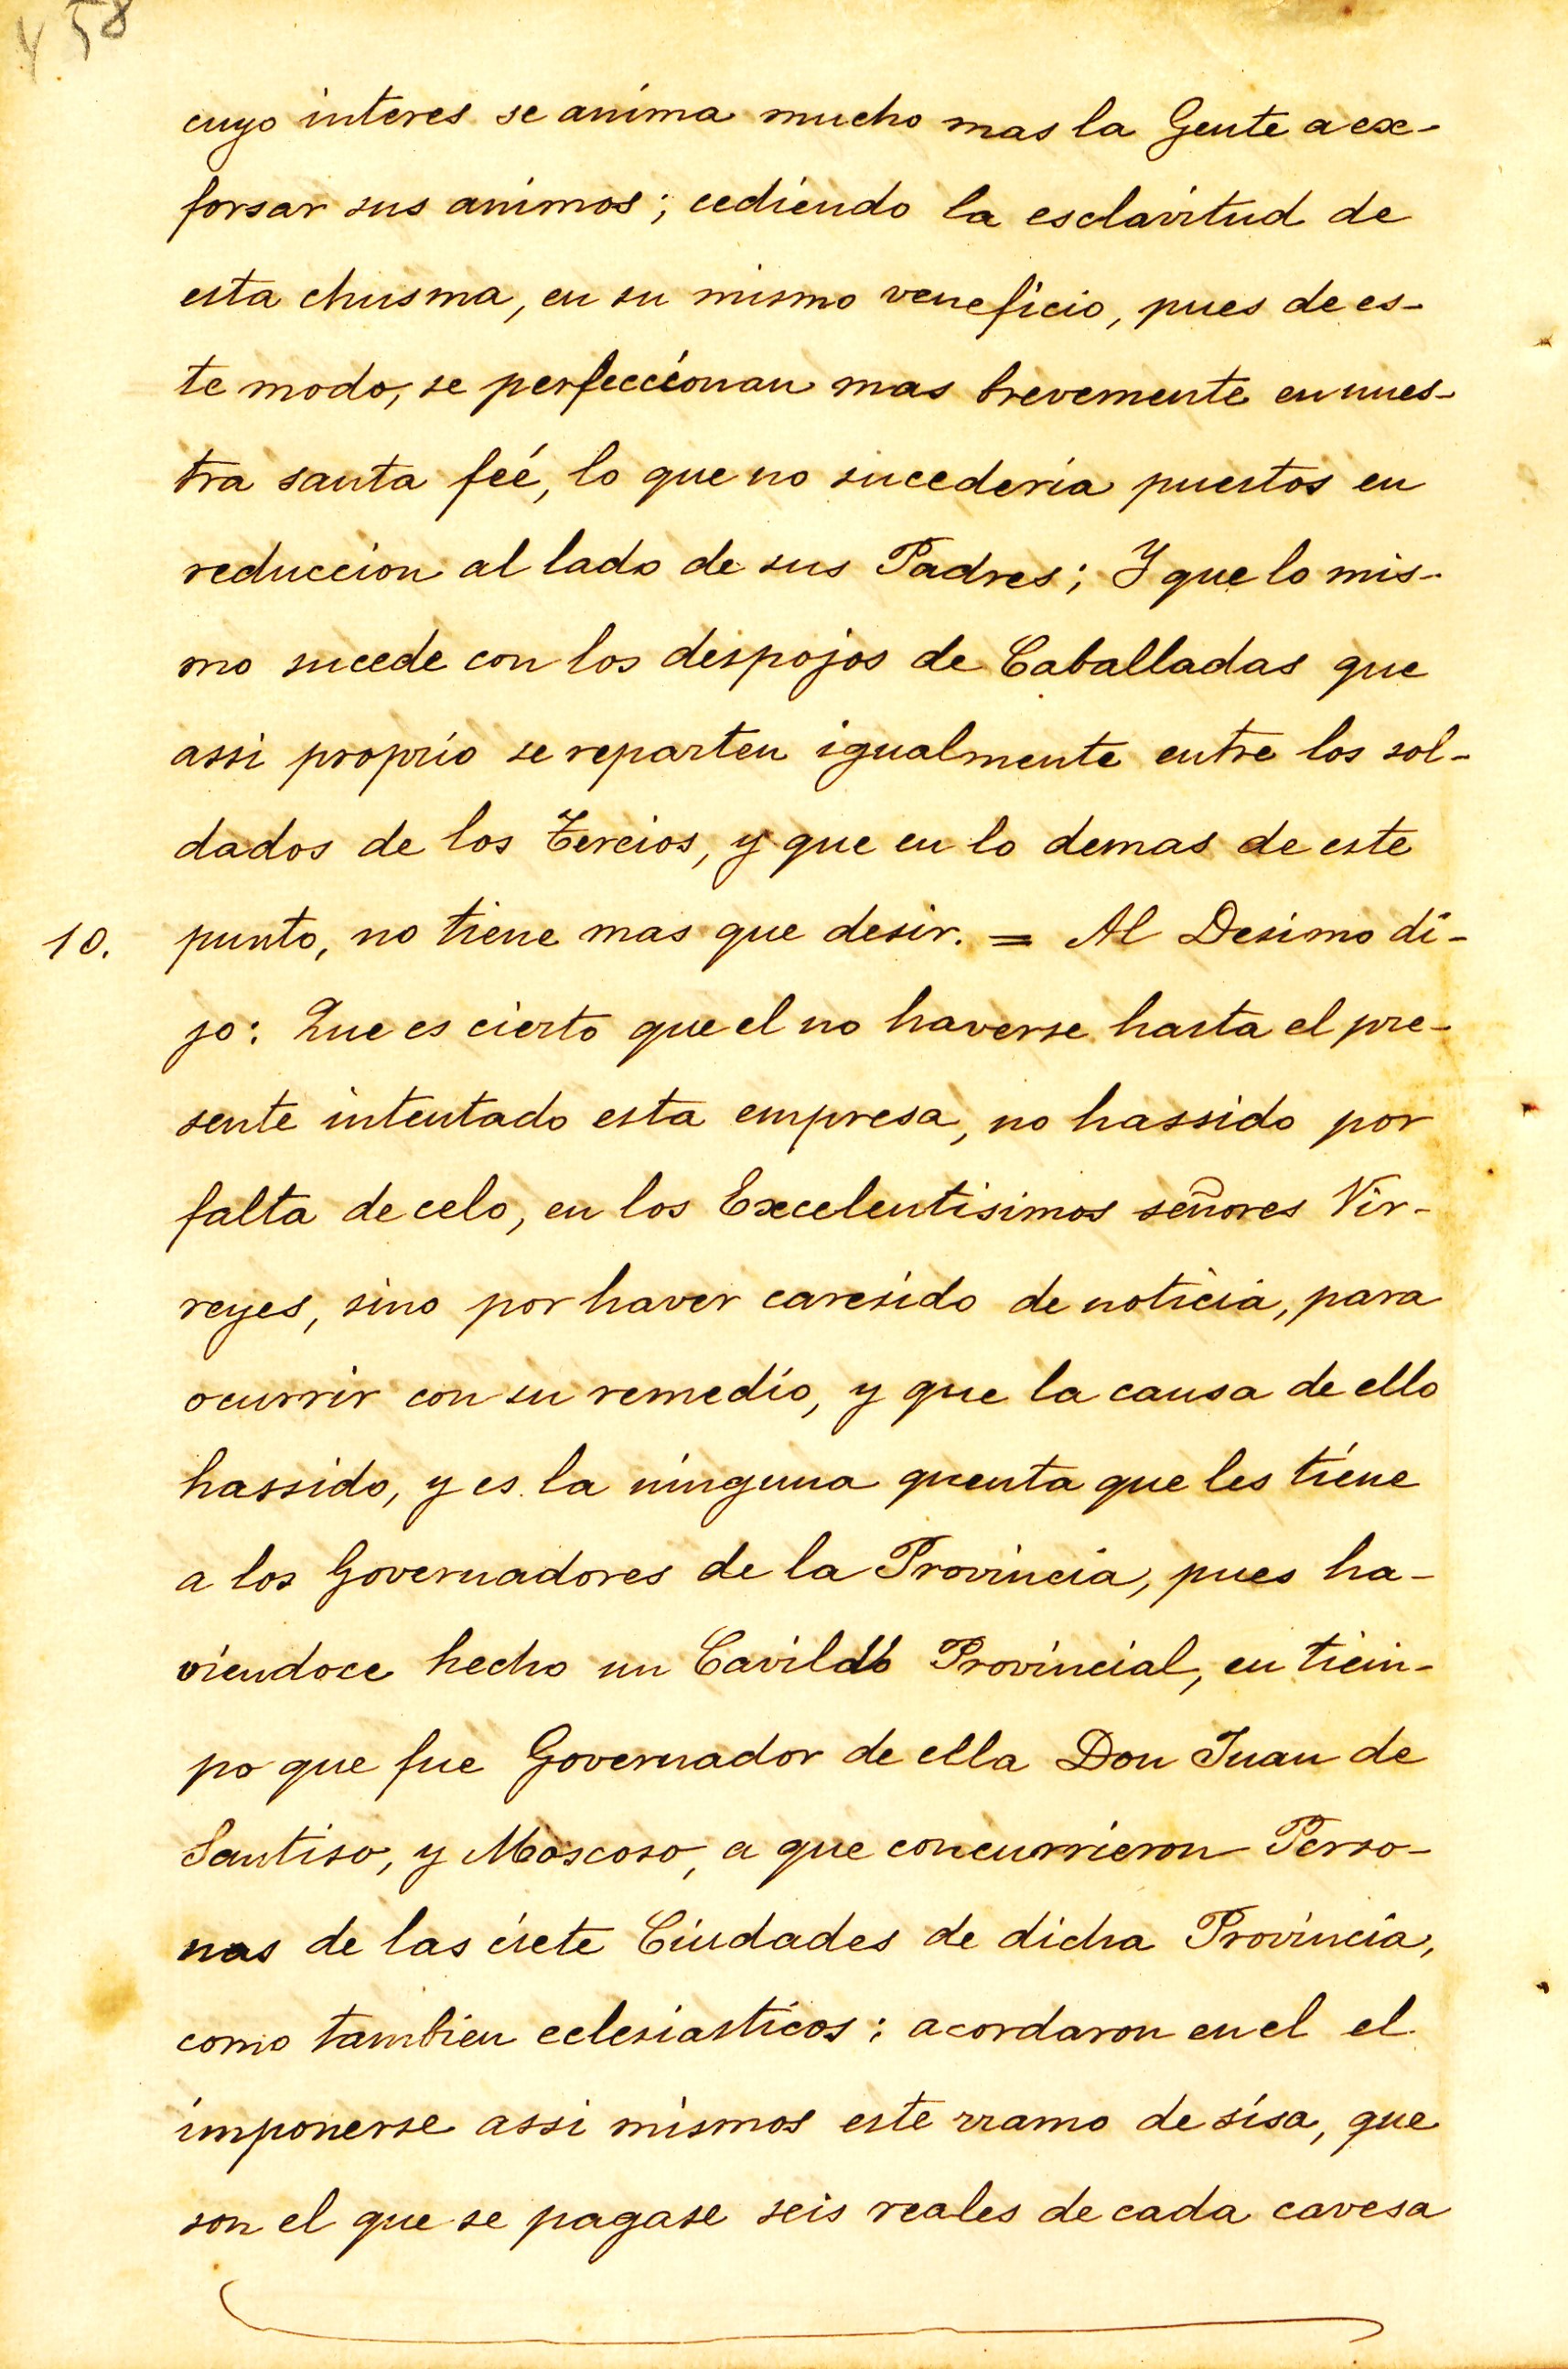 458
cuyo interes se anima mucho mas la Gente a ex-
forsar sus animos; cediendo la esclavitud de
esta chusma, en su mismo veneficio, pues de es-
te modo, se perfeccionan mas brevemente en nues-
tra santa feé, lo que no sucederia puestos en
reduccion al lado de sus Padres; Y que lo mis-
mo sucede con los despojos de Caballadas que
assi proprio se reparten igualmente entre los sol-
dados de los Tercios, y que en lo demas de este
10. punto, no tiene mas que desir. = Al Desimo di-
jo: Que es cierto que el no haverse hasta el pre-
sente intentado esta empresa, no hassido por
falta de celo, en los Excelentisimos señores Vir-
reyes, sino por haver caresido de noticia, para
ocurrir con su remedio, y que la causa de ello
hassido, y es la ninguna quenta que les tiene
a los Governadores de la Provincia, pues ha-
viendoce hecho un Cavildo Provincial, en tiem-
po que fue Governador de ella Don Juan de
Santiso, y Moscoso, a que concurrieron Perso-
nas de las ciete Ciudades de dicha Provincia,
como tambien eclesiasticos; acordaron en el el
imponerse assi mismos este rramo de sisa, que
son el que se pagase seis reales de cada cavesa